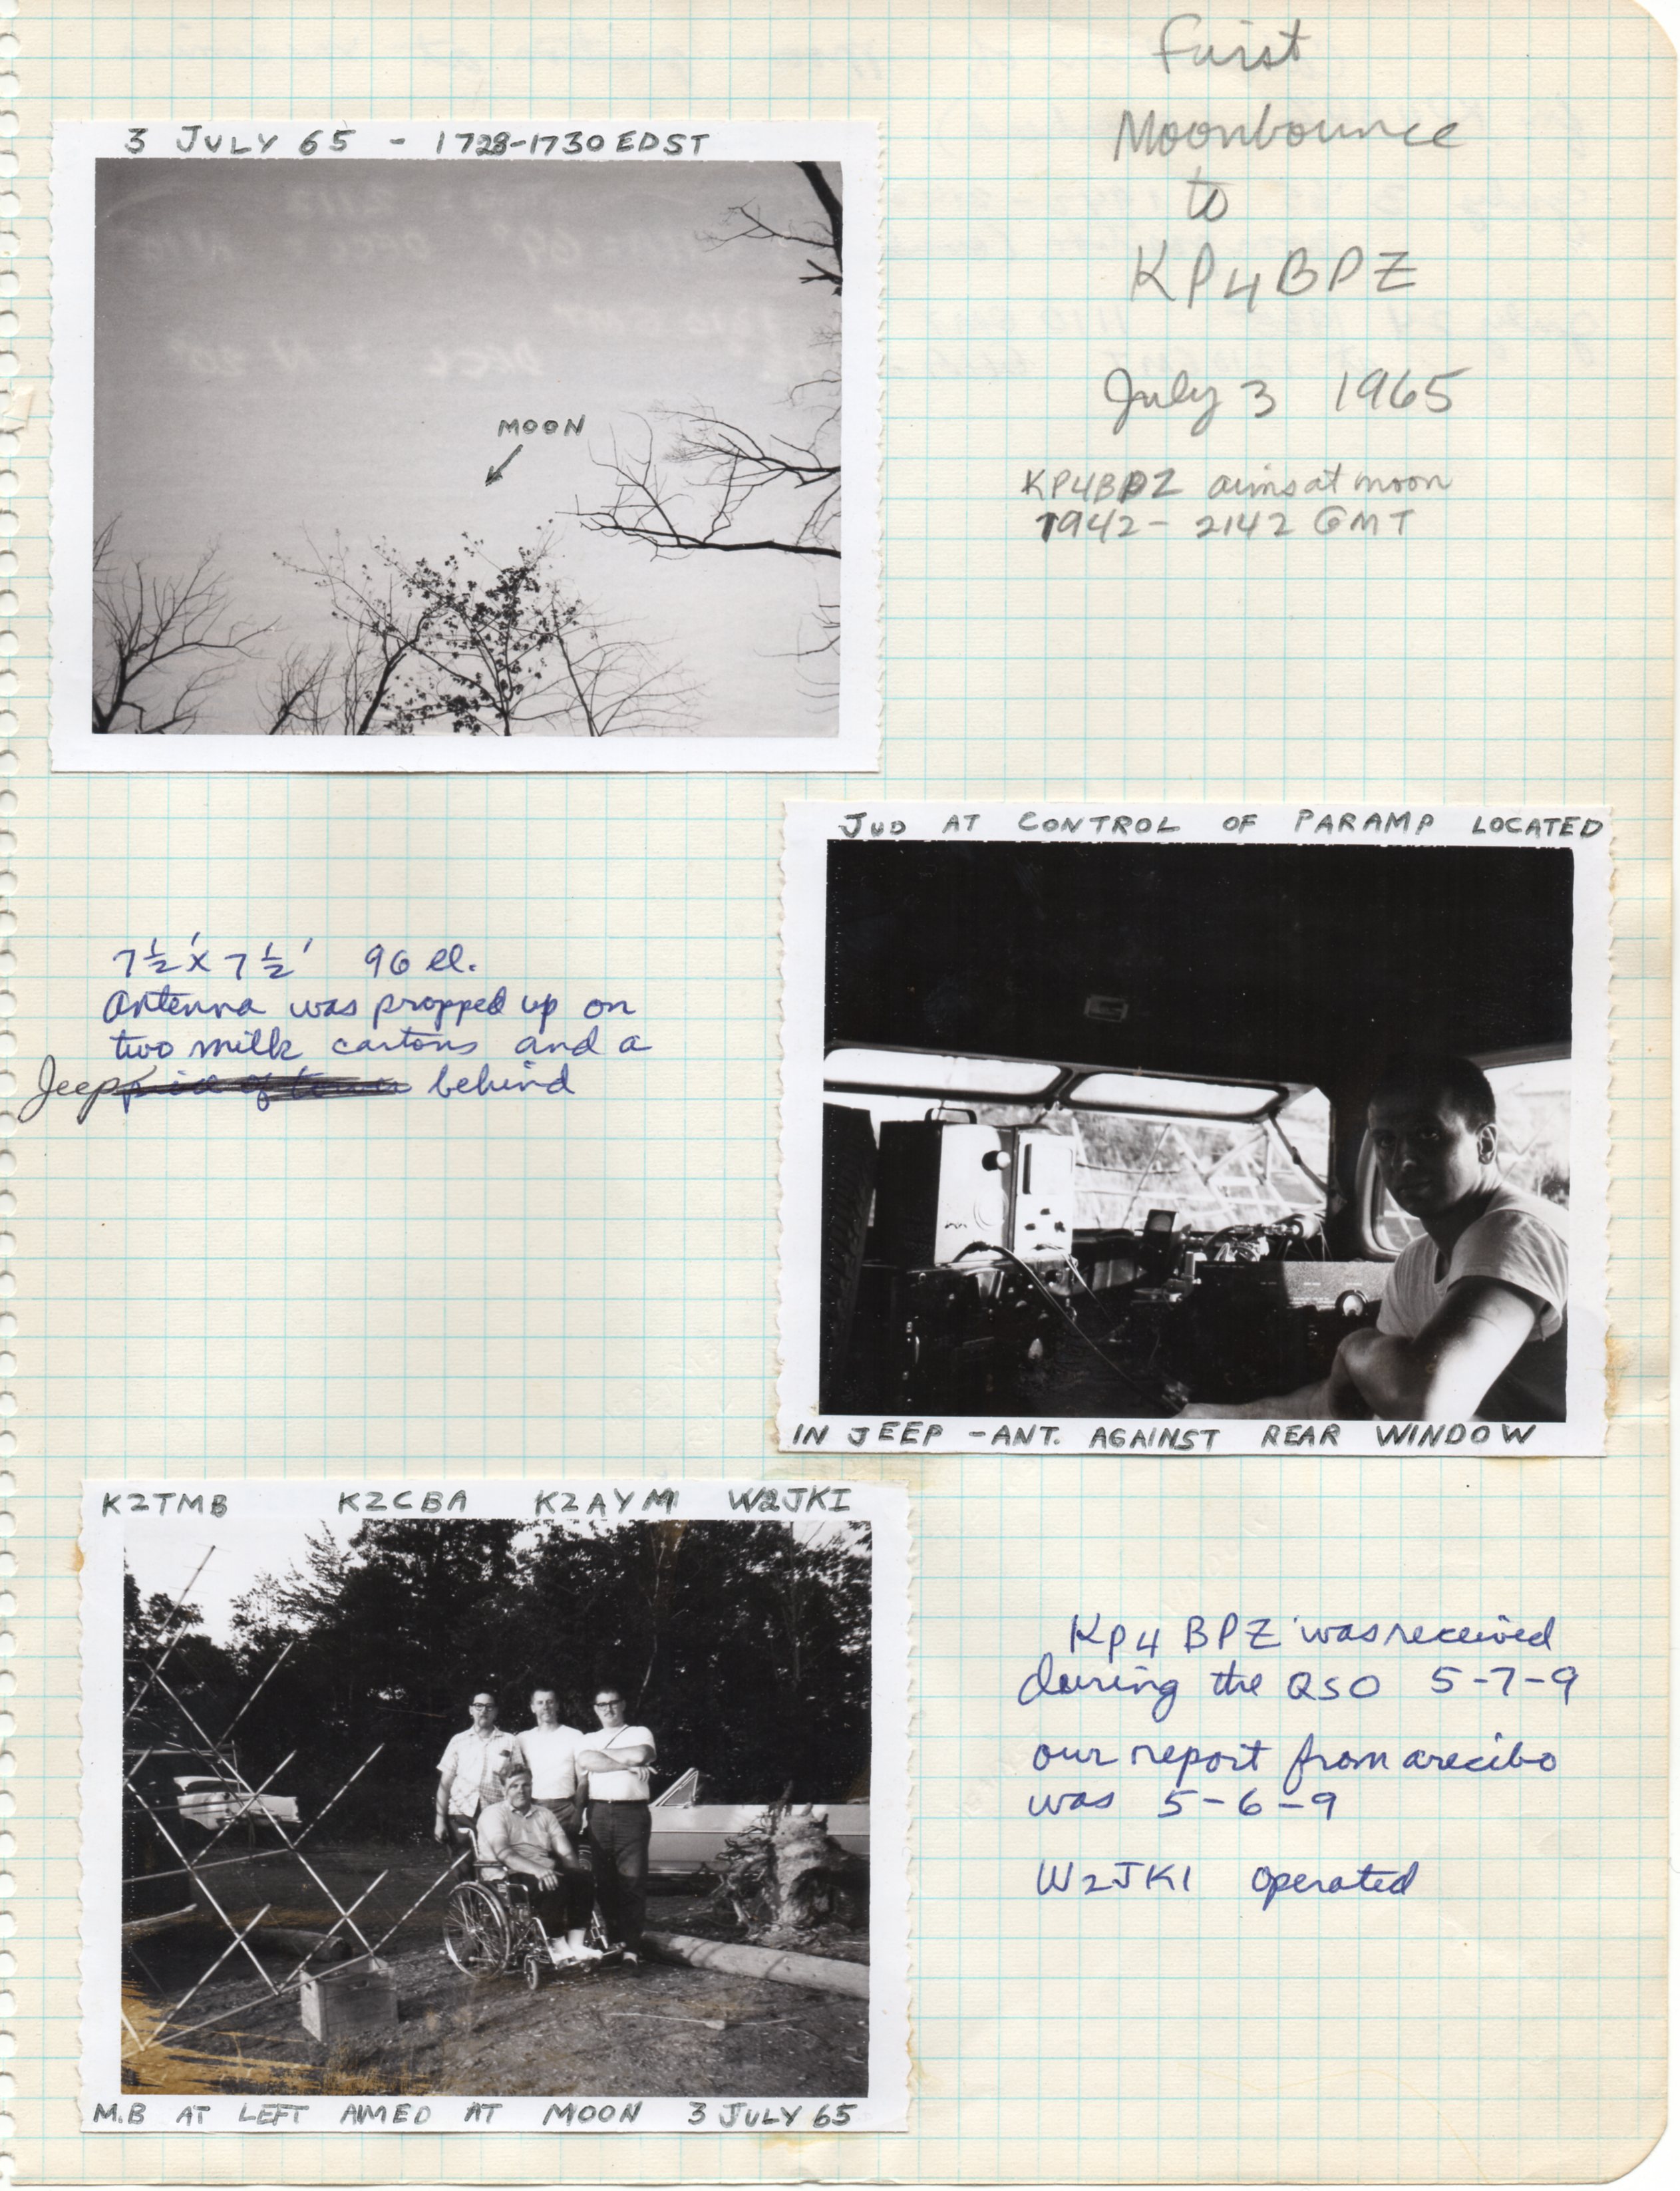 First
Moonbounce
to
KP4BPZ
July 3 1965
KP4BPZ aims at moon
1942 - 2142 GMT
3 JULY 65 - 1728-1730 EDST
MOON
JUD AT CONTROL OF PARAMP LOCATED
IN JEEP - ANT. AGAINST REAR WINDOW
7½' x 7½' 96 el.
Antenna was propped up on
two milk cartons and a
Jeep behind
K2TMB K2CBA K2AYM W2JKI
M.B AT LEFT AIMED AT MOON 3 JULY 65
KP4BPZ was received
during the QSO 5-7-9
our report from arecibo
was 5-6-9
W2JKI operated